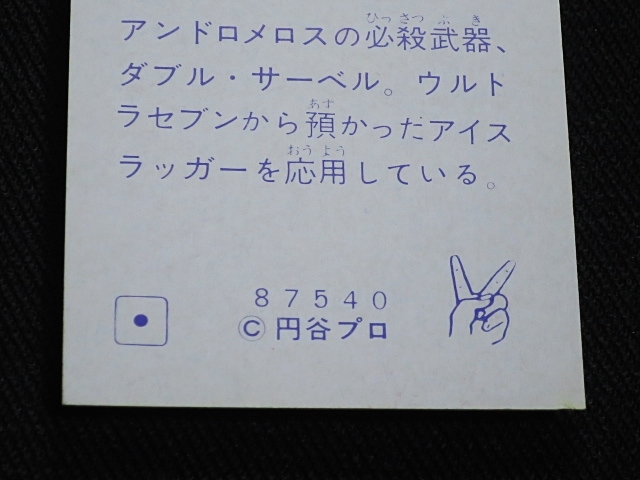 アンドロメロスの必殺武器、
ひっさつ ぶき
ダブル・サーベル。ウルト
ラセブンから預かったアイス
あず
ラッガーを応用している。
おうよう
87540
Ⓒ円谷プロ